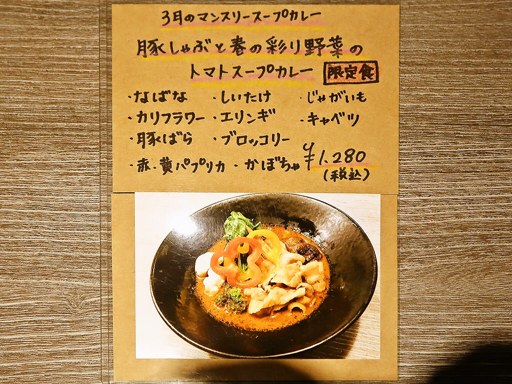 3月のマンスリースープカレー
豚しゃぶと春の彩り野菜の
トマトスープカレー 限定食
・なばな ・しいたけ ・じゃがいも
・カリフラワー ・エリンギ ・キャベツ
・豚ばら ・ブロッコリー
・赤・黄パプリカ ・かぼちゃ ¥1,280
(税込)